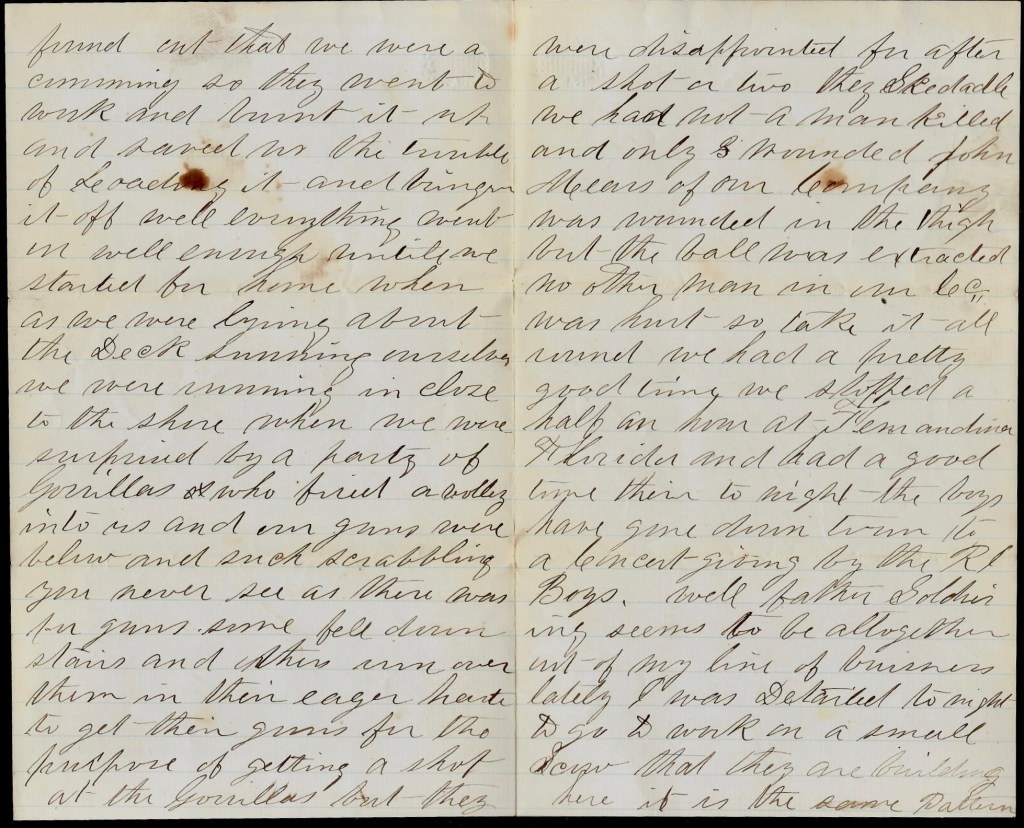 found out that we were a
cumming so they went to
work and burnt it up
and saved us the trouble
of Loading it and bringin
it off well everything went
on well enough untile we
started for home when
as we were lying about
the Deck sunning ourselves
we were running in close
to the shore when we were
surprised by a party of
Gorillas who fired a volley
into us and our guns were
below and such scrabbling
you never see as there was
for guns. some fell down
stairs and others run over
them in their eager haste
to get their guns for the
purpose of getting a shot
at the Gorillas but they
were disappointed for after
a shot or two they Skedadle
we had not a man killed
and only wounded John
Mears of our Company
was wounded in the thigh
but the ball was extracted
no other man in our Co,,
was hurt so take it all
round we had a pretty
good time we stopped a
half an hour at Fernandina
Florider and had a good
time their to night the boys
have gone down town to
a Concert giving by the RI
Boys. well father Soldier
ing seems to be altogether
out of my line of buisness
lately I was Detailed to night
to go to work on a small
Scow that they are building
here it is the same Pattern